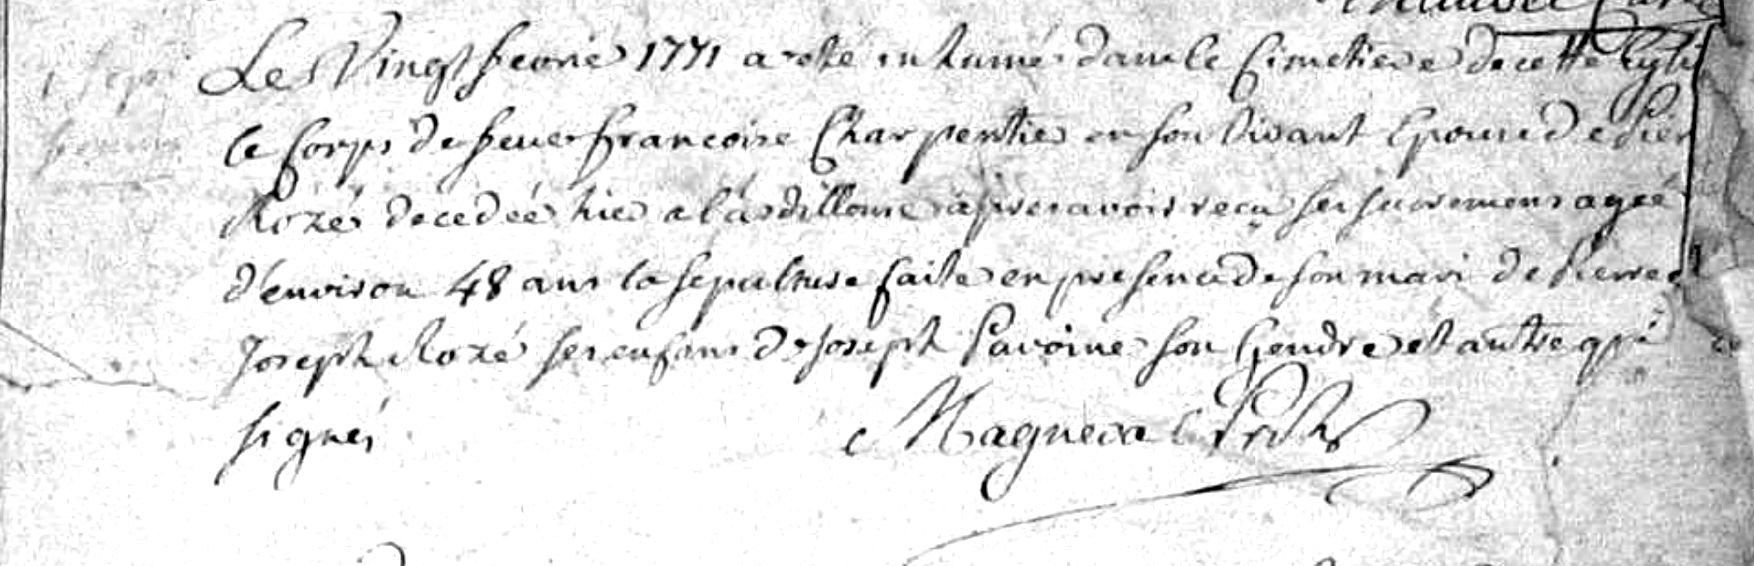 Le Vingt fevrié 1771 a eté inhumé dans le Cimetiere de cette Eglis
le Corps de feue francoise Charpentier en son vivant Epouse de Pier
Rozé decedée hier a l'ardillouse apres avoir reçu ses sacremens agée
d'environ 48 ans la sepulture faite en presence de son mari de Pierre et
Joseph Rozé ses enfans de Joseph Pavoine son Gendre et autre qui
signés
Magnera